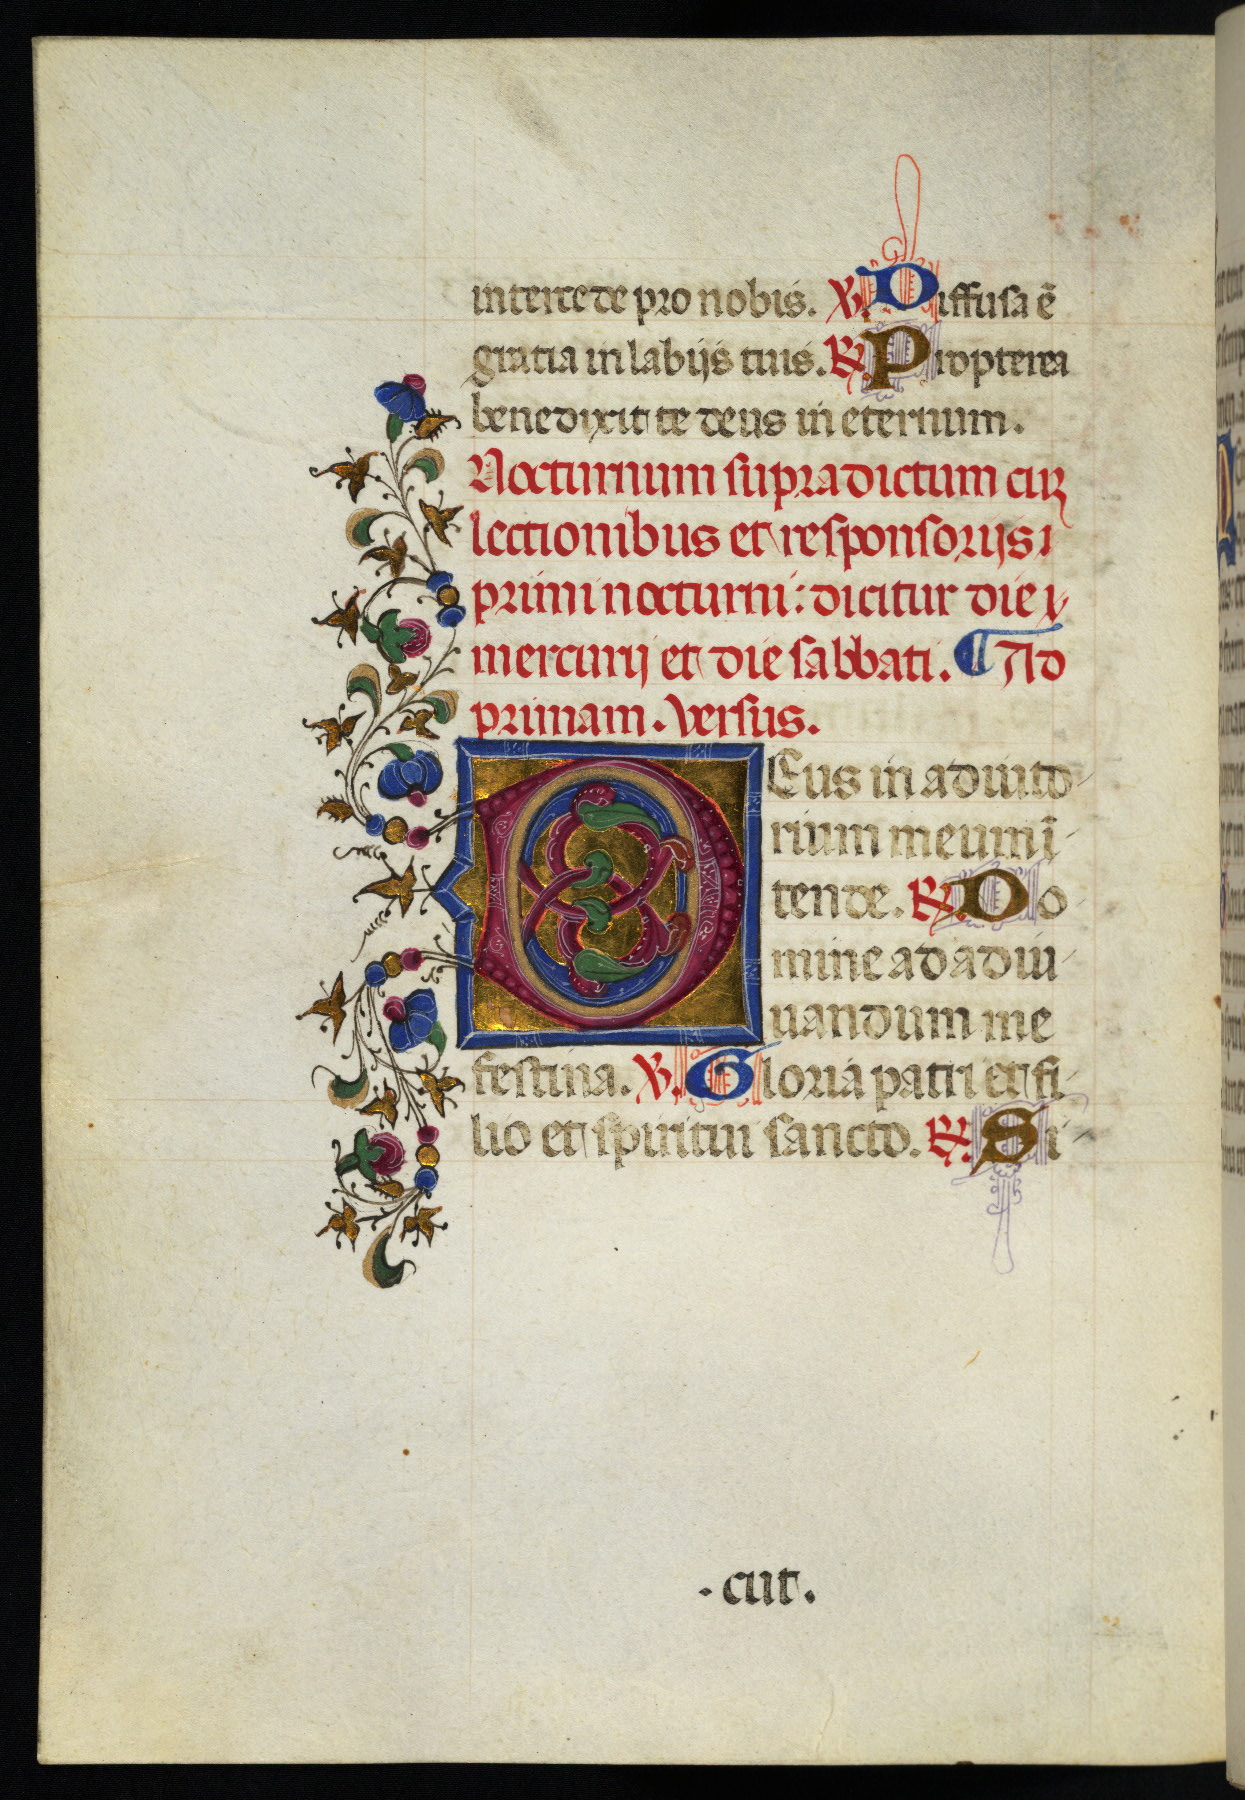 intercede pro nobis. ℣. Diffusa ē
gratia in labijs tuis. ℟ Propterea
benedixit te deus in eternum.
Nocturnum supradictum cuꝫ
lectionibus et responsorijs
primi nocturni: dicitur die
mercurij et die sabbati. ¶ Ad
primam. versus.
DEus in adiuto-
rium meum ī-
tende. ℟. Do
mine ad adiu-
uandum me
festina. ℣. Gloria patri et fi-
lio et spiritui sancto. ℟. Si-
·cut.